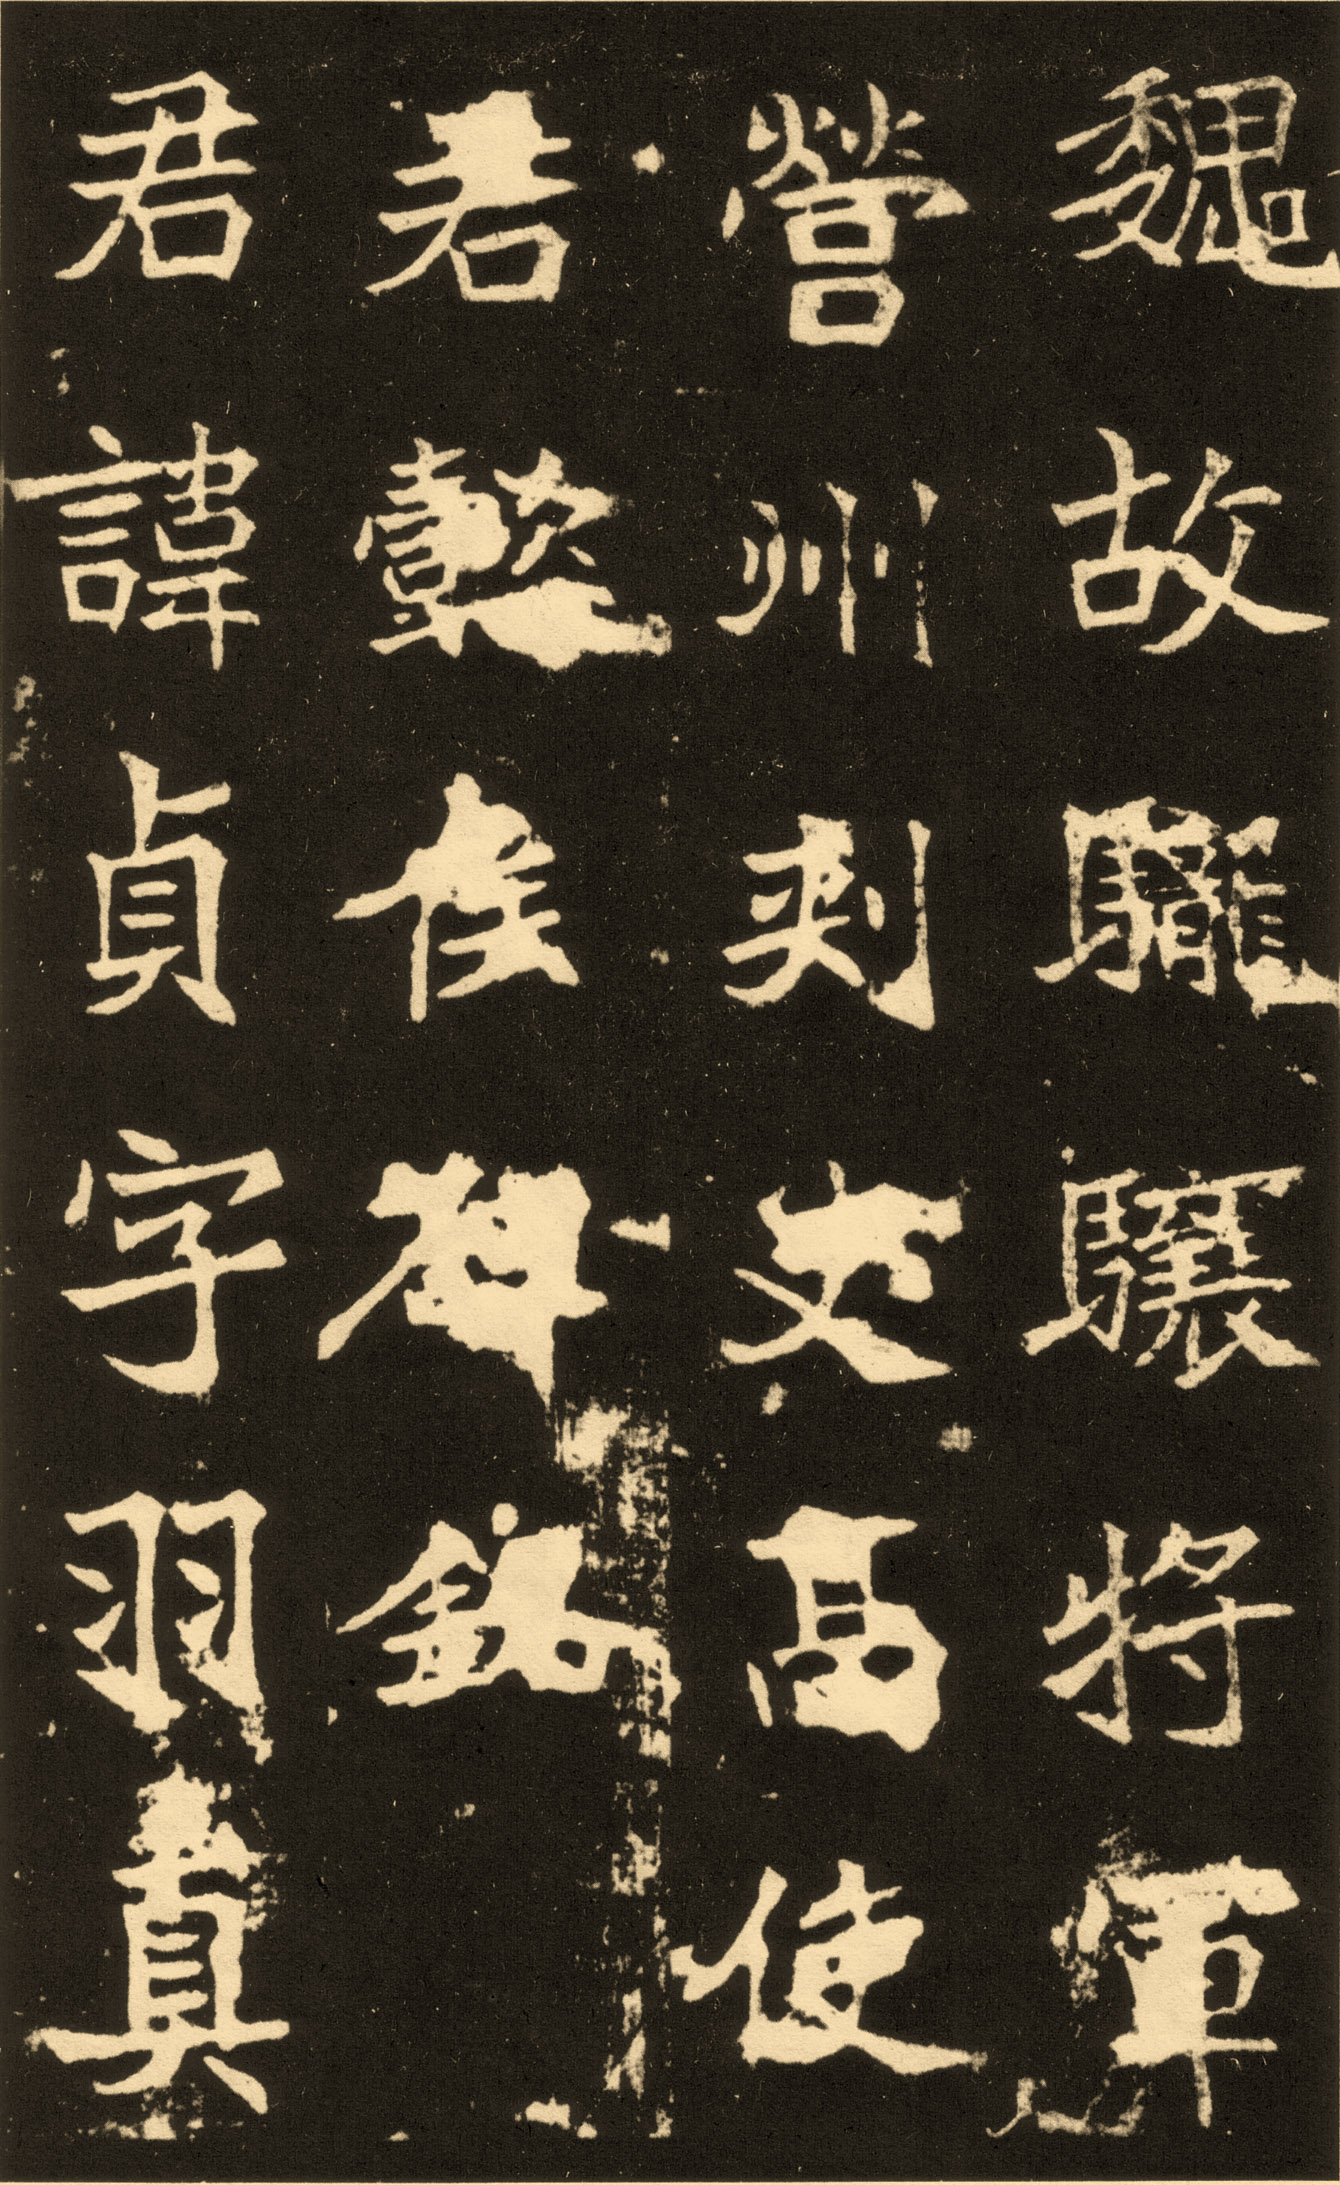 魏故驪驤將軍
營州刺史高使
君懿侯碑銘
君諱貞字羽真